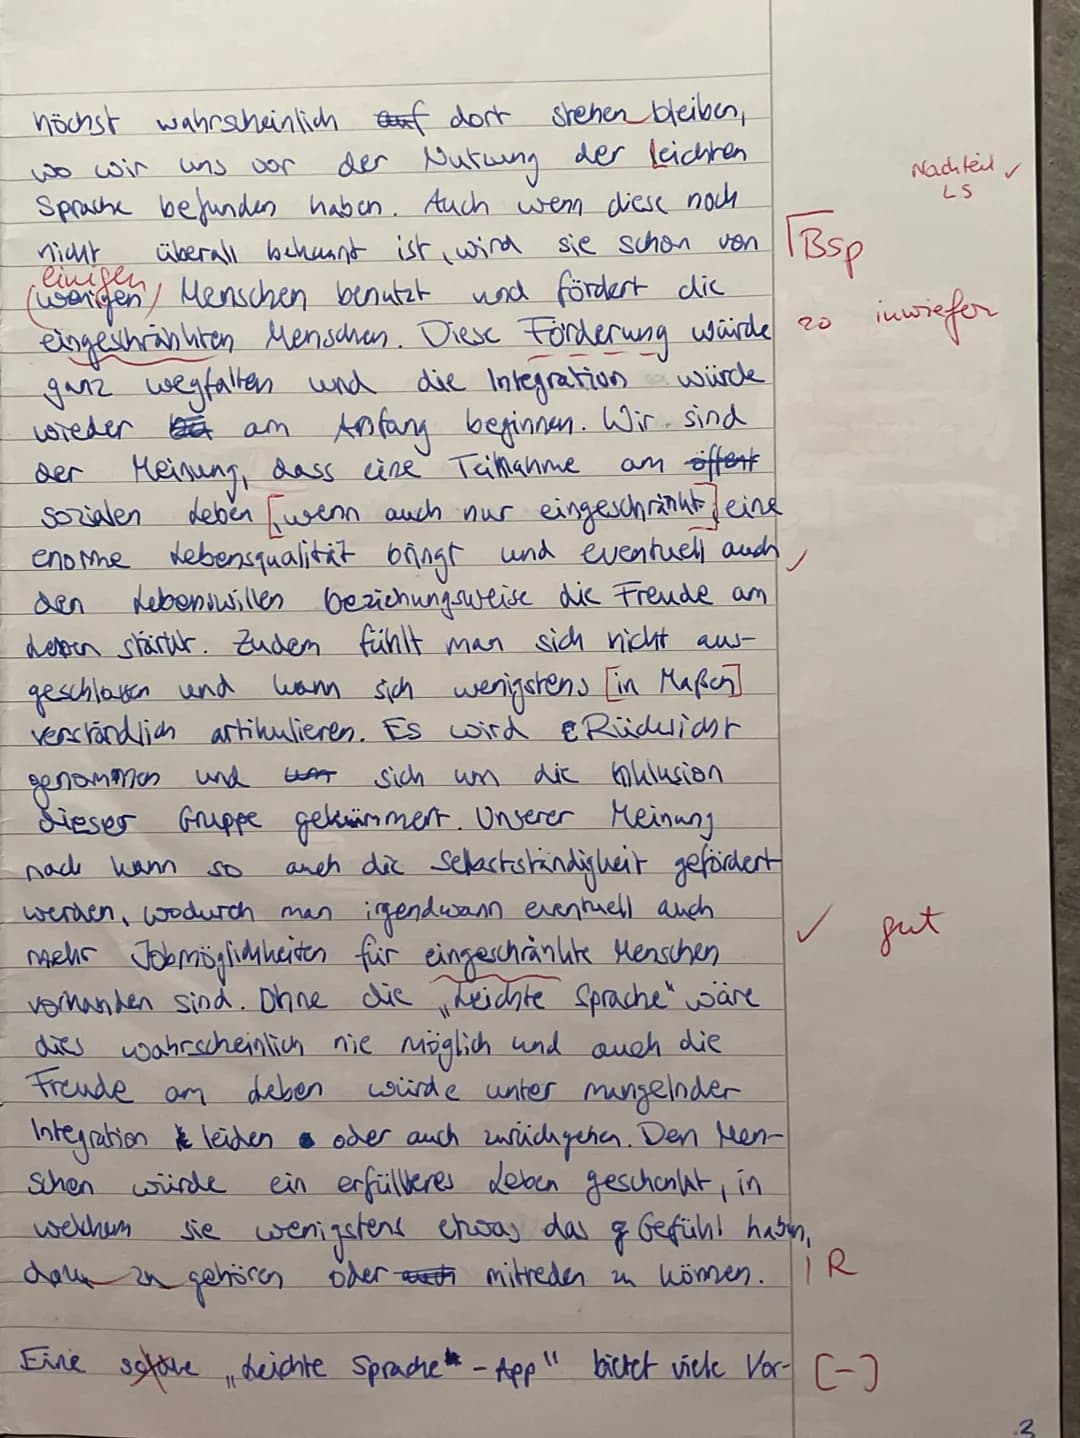 höchst wahrscheinlich auf dort stehen bleiben,
wo wir uns vor der Nutzung der Leichten
Nachteil ✓
LS
Sprache befunden haben. Auch wenn diese noch
nicht überall bekannt ist, wird sie schon von
Bsp
einigen
(wenigen) Menschen benutzt und fördert die
inwiefern
eingeschränkten Menschen. Diese Förderung würde
ganz wegfallen und die Integration würde
wieder am Anfang beginnen. Wir sind
der Meinung, dass eine Teilnahme am öffent
sozialen Leben [, wenn auch nur eingeschränkt,] eine
enorme Lebensqualität bringt und eventuell auch ✓
den Lebenswillen beziehungsweise die Freude am
Leben stärkt. Zudem fühlt man sich nicht aus-
geschlossen und kann sich wenigstens [in Maßen]
verständlich artikulieren. Es wird Rücksicht
genommen und um sich um die Inklusion
dieser Gruppe gekümmert. Unserer Meinung
nach kann so auch die Selbstständigkeit gefördert
werden, wodurch man irgendwann eventuell auch
✓ gut
mehr Jobmöglichkeiten für eingeschränkte Menschen
vorhanden sind. Ohne die „Leichte Sprache" wäre
dies wahrscheinlich nie möglich und auch die
Freude am Leben würde unter mangelnder
Integration leiden oder auch zurückgehen. Den Men-
schen würde ein erfüllteres Leben geschenkt, in
welchem sie wenigstens etwas das Gefühl haben,
dazu zu gehören oder auch mitreden zu können. | R
Eine solche „Leichte Sprache" - App" bietet viele Vor- [-]
3